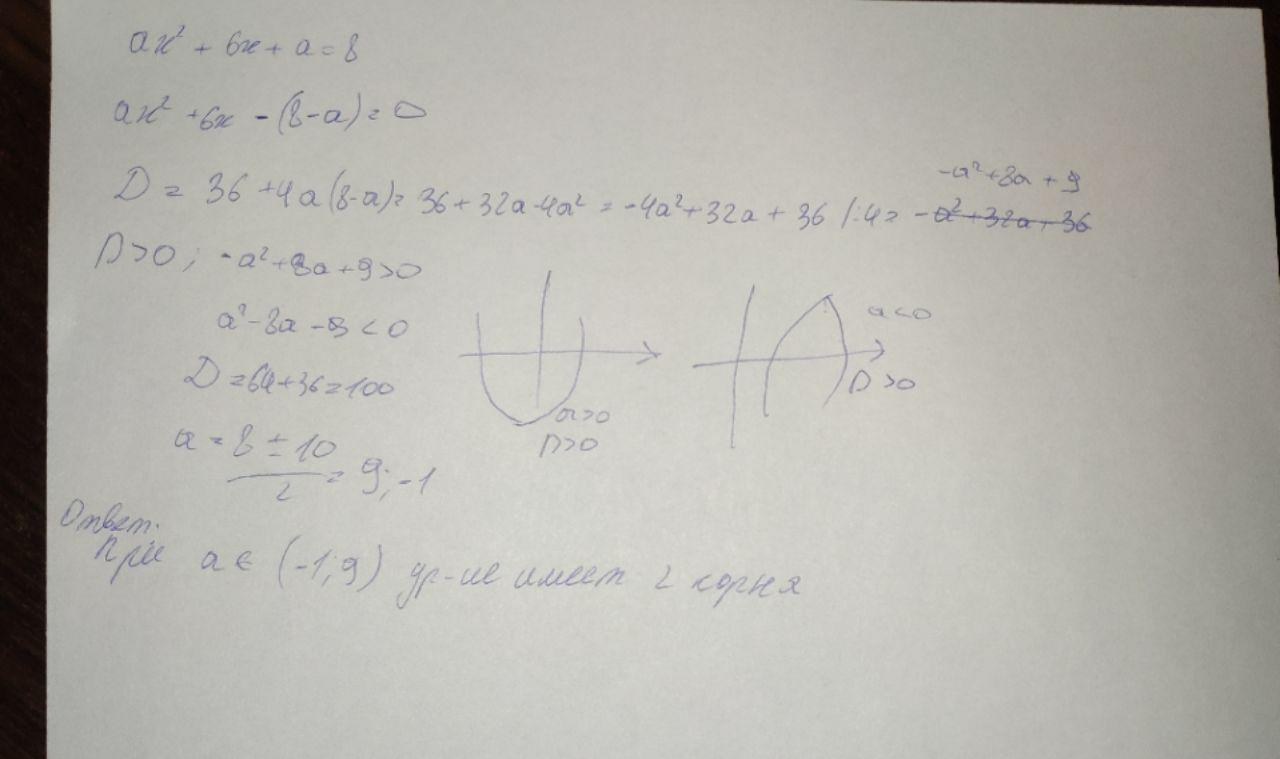 ax² + 6x + a = 8
ax² + 6x - (8-a) = 0
D = 36 + 4a(8-a) = 36 + 32a - 4a² = -4a² + 32a + 36 / :4 = -a² + 32a + 36
-a² + 8a + 9
D>0; -a² + 8a + 9 > 0
a² - 8a - 9 < 0
D = 64 + 36 = 100
a = 8 ± 10 / 2 = 9; -1
a>0
D>0
a<0
D>0
Ответ.
При a ∈ (-1; 9) ур-ие имеет 2 корня